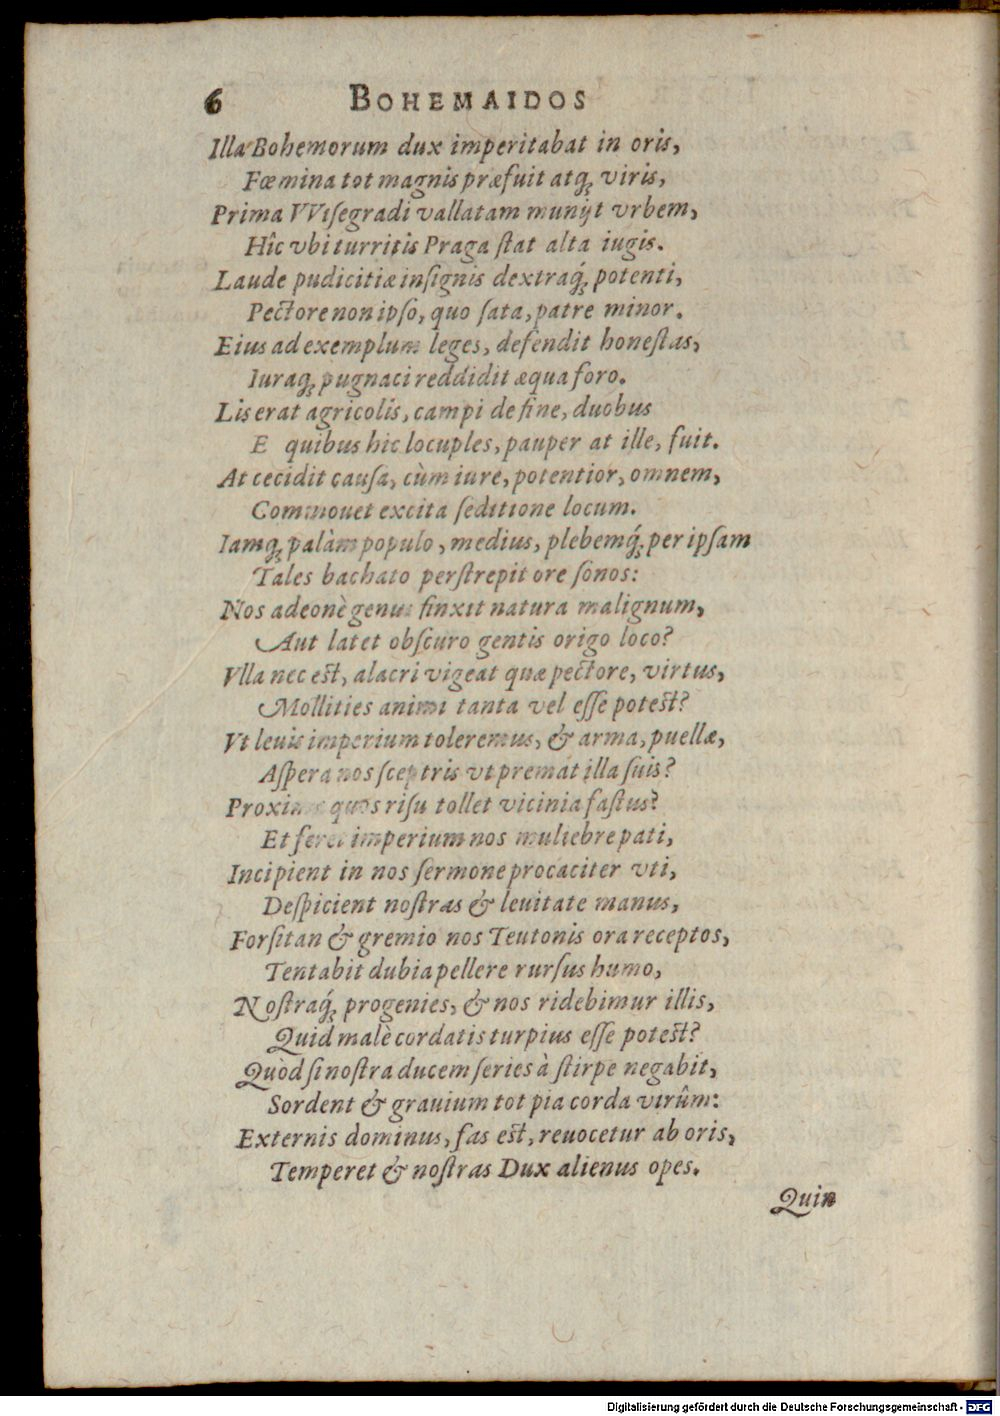 6 BOHEMAIDOS
Illa Bohemorum dux imperitabat in oris,
Fœmina tot magnis præfuit atq́ꝫ viris,
Prima VViſegradi vallatam munijt vrbem,
Hîc vbi turritis Praga ſtat alta iugis.
Laude pudicitiæ inſignis dextraq́ꝫ potenti,
Pectore non ipſo, quo ſata, patre minor.
Eius ad exemplum leges, defendit honeſtas,
Iuraqꝫ pugnaci reddidit æqua foro.
Lis erat agricolis, campi de fine, duobus
E quibus hic locuples, pauper at ille, fuit.
At cecidit cauſa, cùm iure, potentior, omnem,
Commouet excita ſeditione locum.
Iamqꝫ palàm populo, medius, plebemq́ꝫ per ipſam
Tales bachato perſtrepit ore ſonos:
Nos adeonè genus finxit natura malignum,
Aut latet obſcuro gentis origo loco?
Vlla nec est, alacri vigeat quæ pectore, virtus,
Mollities animi tanta vel eſſe potest?
Vt leuis imperium toleremus, & arma, puellæ,
Aſpera nos ſceptris vt premat illa ſuis?
Proxima quos riſu tollet vicinia faſtus?
Et feret imperium nos muliebre pati,
Incipient in nos ſermone procaciter vti,
Deſpicient noſtras & leuitate manus,
Forſitan & gremio nos Teutonis ora receptos,
Tentabit dubia pellere rurſus humo,
Noſtraq́ꝫ progenies, & nos ridebimur illis,
Quid malè cordatis turpius eſſe potest?
Quòd ſi noſtra ducem ſeries à ſtirpe negabit,
Sordent & grauium tot pia corda virûm:
Externis dominus, fas est, reuocetur ab oris,
Temperet & noſtras Dux alienus opes.
Quin
Digitalisierung gefördert durch die Deutsche Forschungsgemeinschaft - DFG